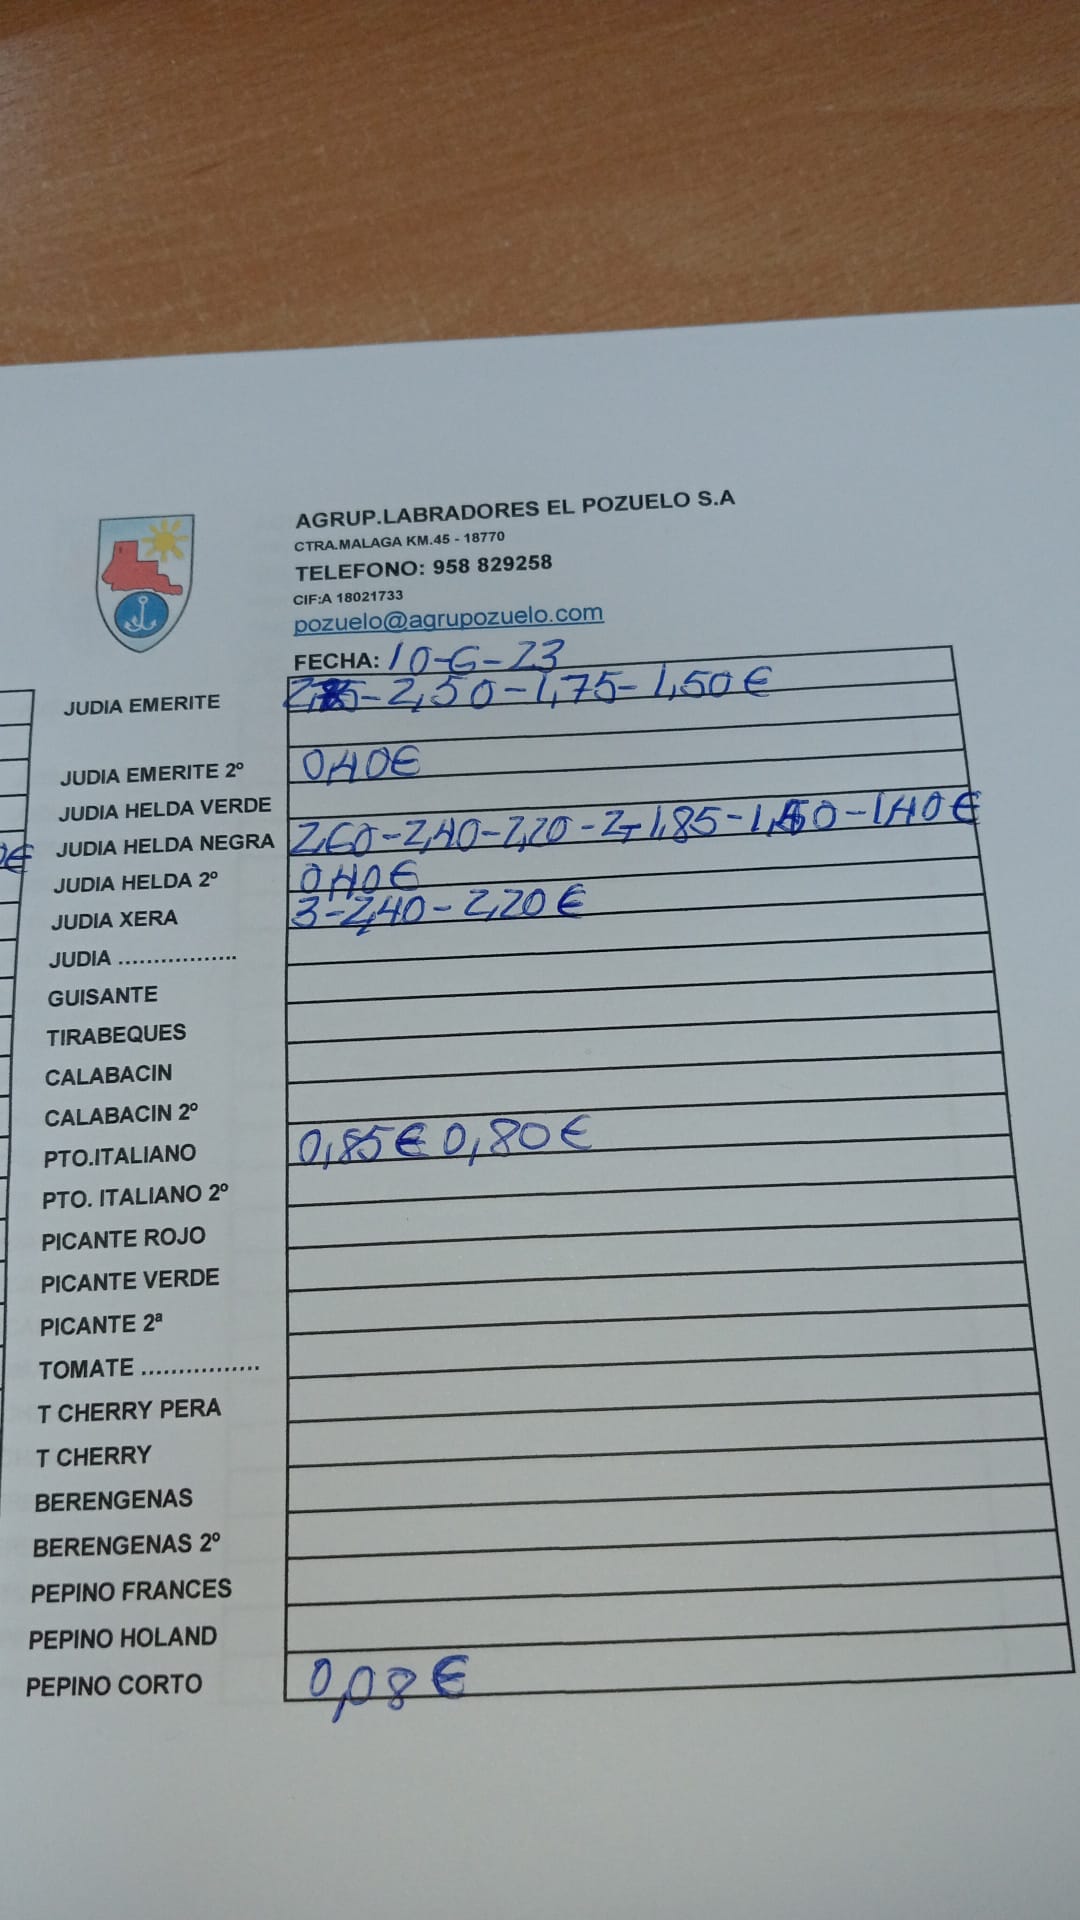 AGRUP.LABRADORES EL POZUELO S.A
CTRA.MALAGA KM.45 - 18770
TELEFONO: 958 829258
CIF:A 18021733
pozuelo@agrupozuelo.com
FECHA: 10-6-23
JUDIA EMERITE -2,50-1,75-1,50€
JUDIA EMERITE 2º 0,40€
JUDIA HELDA VERDE
JUDIA HELDA NEGRA 2,60-2,40-2,20-2-1,85- -1,40€
€
JUDIA HELDA 2º 0,40€
JUDIA XERA 3-2,40-2,20€
JUDIA .................
GUISANTE
TIRABEQUES
CALABACIN
CALABACIN 2º
PTO.ITALIANO 0,85€ 0,80€
PTO. ITALIANO 2º
PICANTE ROJO
PICANTE VERDE
PICANTE 2ª
TOMATE ................
T CHERRY PERA
T CHERRY
BERENGENAS
BERENGENAS 2º
PEPINO FRANCES
PEPINO HOLAND
PEPINO CORTO 0,08€